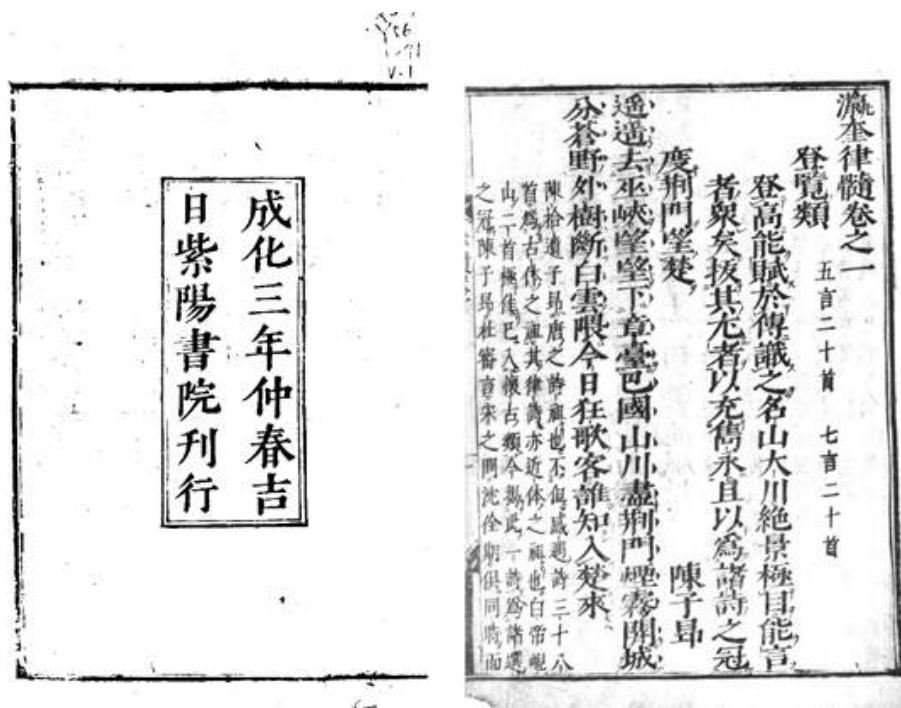 V.1
成化三年仲春吉
日紫陽書院刊行
瀛奎律髓卷之一
登覽類 五言二十首 七言二十首
登高能賦於傳識之名山大川絶景極目能言
者衆矣拔其尤者以充雋永且以爲諸詩之冠
度荆門望楚 陳子昻
遥遥去巫峽望望下章臺巴國山川盡荆門煙霧開城
分蒼野外樹斷白雲隈今日狂歌客誰知入楚來
陳拾遺子昻唐之詩祖也不但感遇詩三十八
首爲古体之祖其律詩亦近体之祖也白帝峴
山二首極佳已入懷古類今揭此一詩爲諸選
之冠陳子昻杜審言宋之問沈佺期俱同時而